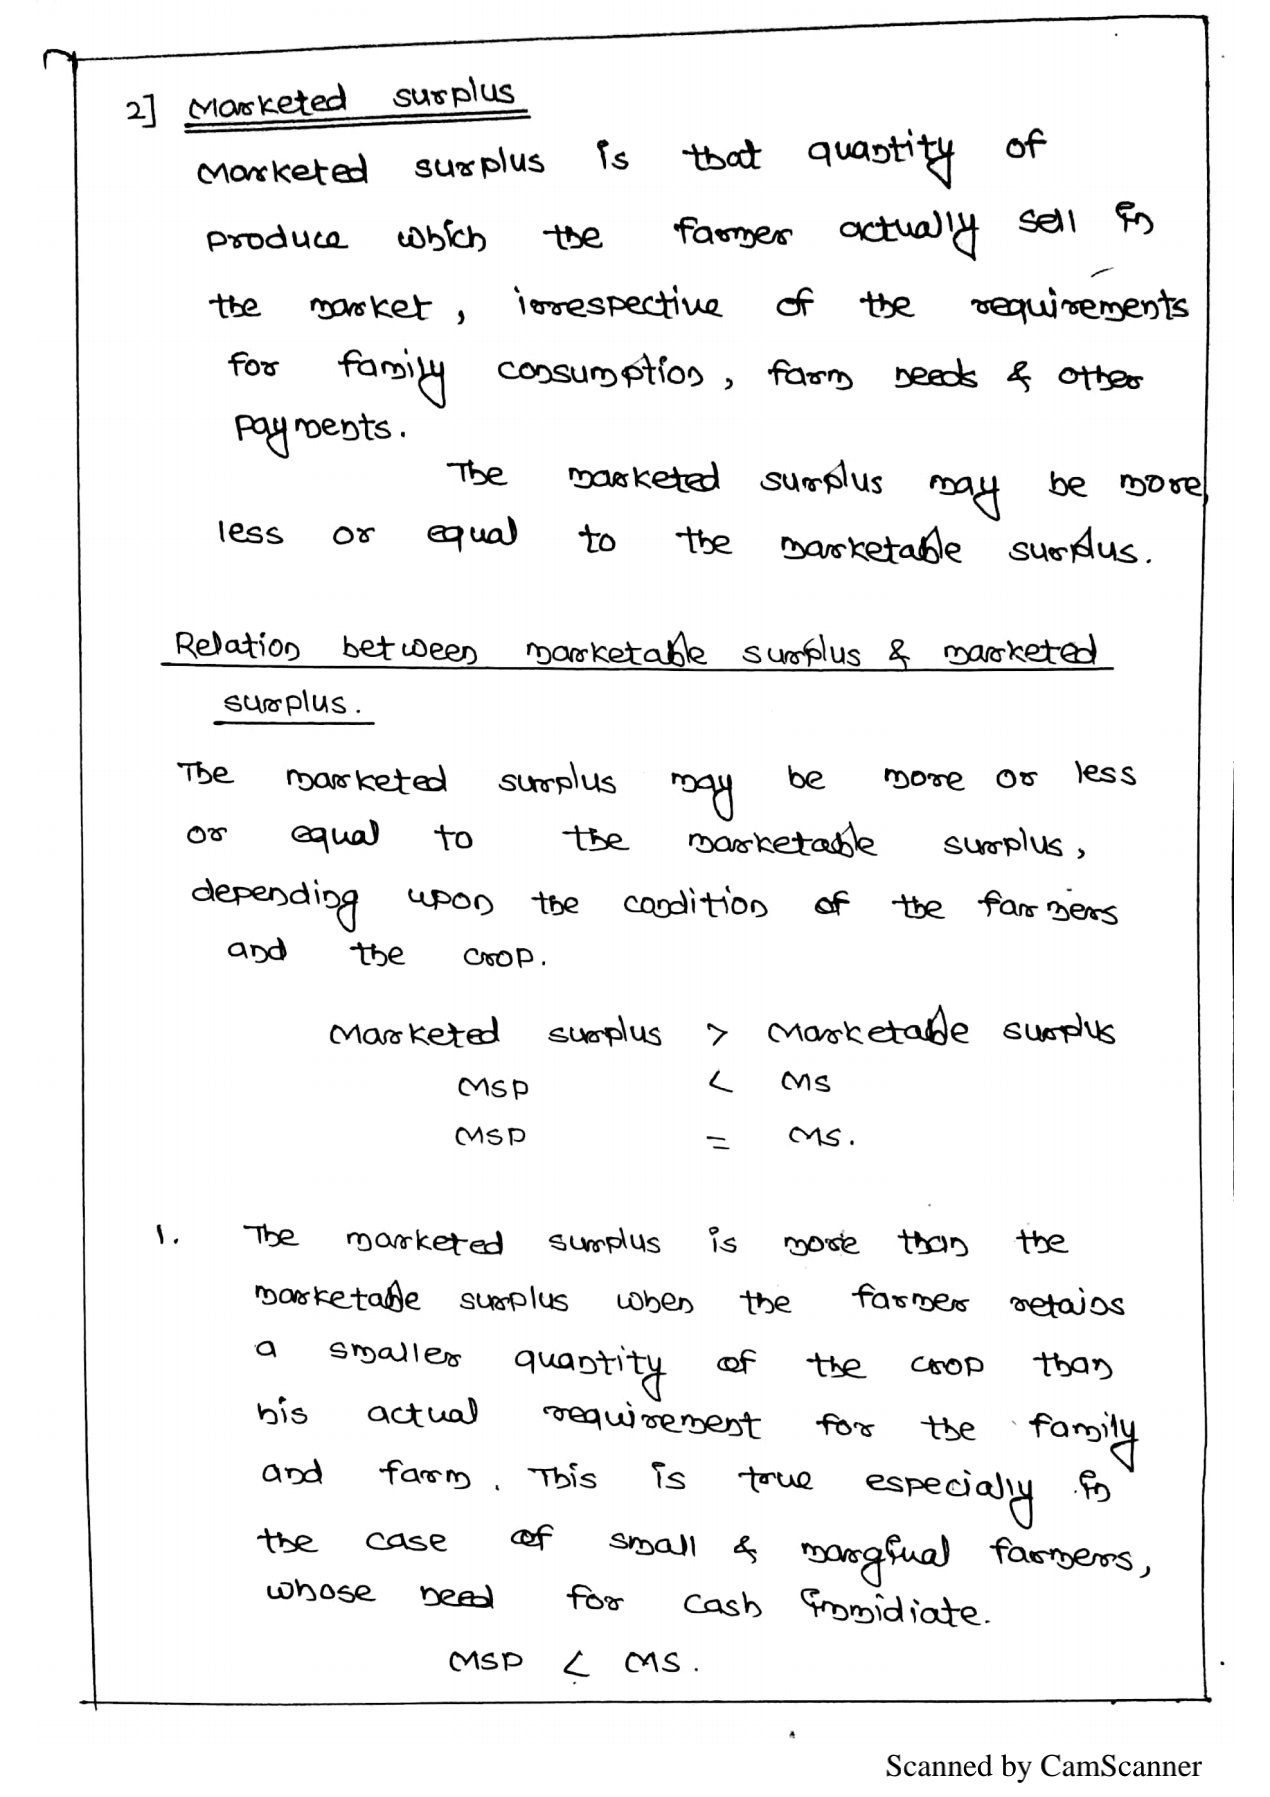 2] Marketed surplus
Marketed surplus is that quantity of
produce which the farmer actually sell in
the market, irrespective of the requirements
for family consumption, farm needs & other
payments.
The marketed surplus may be more
less or equal to the marketable surplus.
Relation between marketable surplus & marketed
surplus.
The marketed surplus may be more or less
or equal to the marketable surplus,
depending upon the condition of the farmers
and the crop.
Marketed surplus > Marketable surplus
MSP < MS
MSP = MS.
1. The marketed surplus is more than the
marketable surplus when the farmer retains
a smaller quantity of the crop than
his actual requirement for the family
and farm. This is true especially in
the case of small & marginal farmers,
whose need for cash immidiate.
MSP < MS.
Scanned by CamScanner